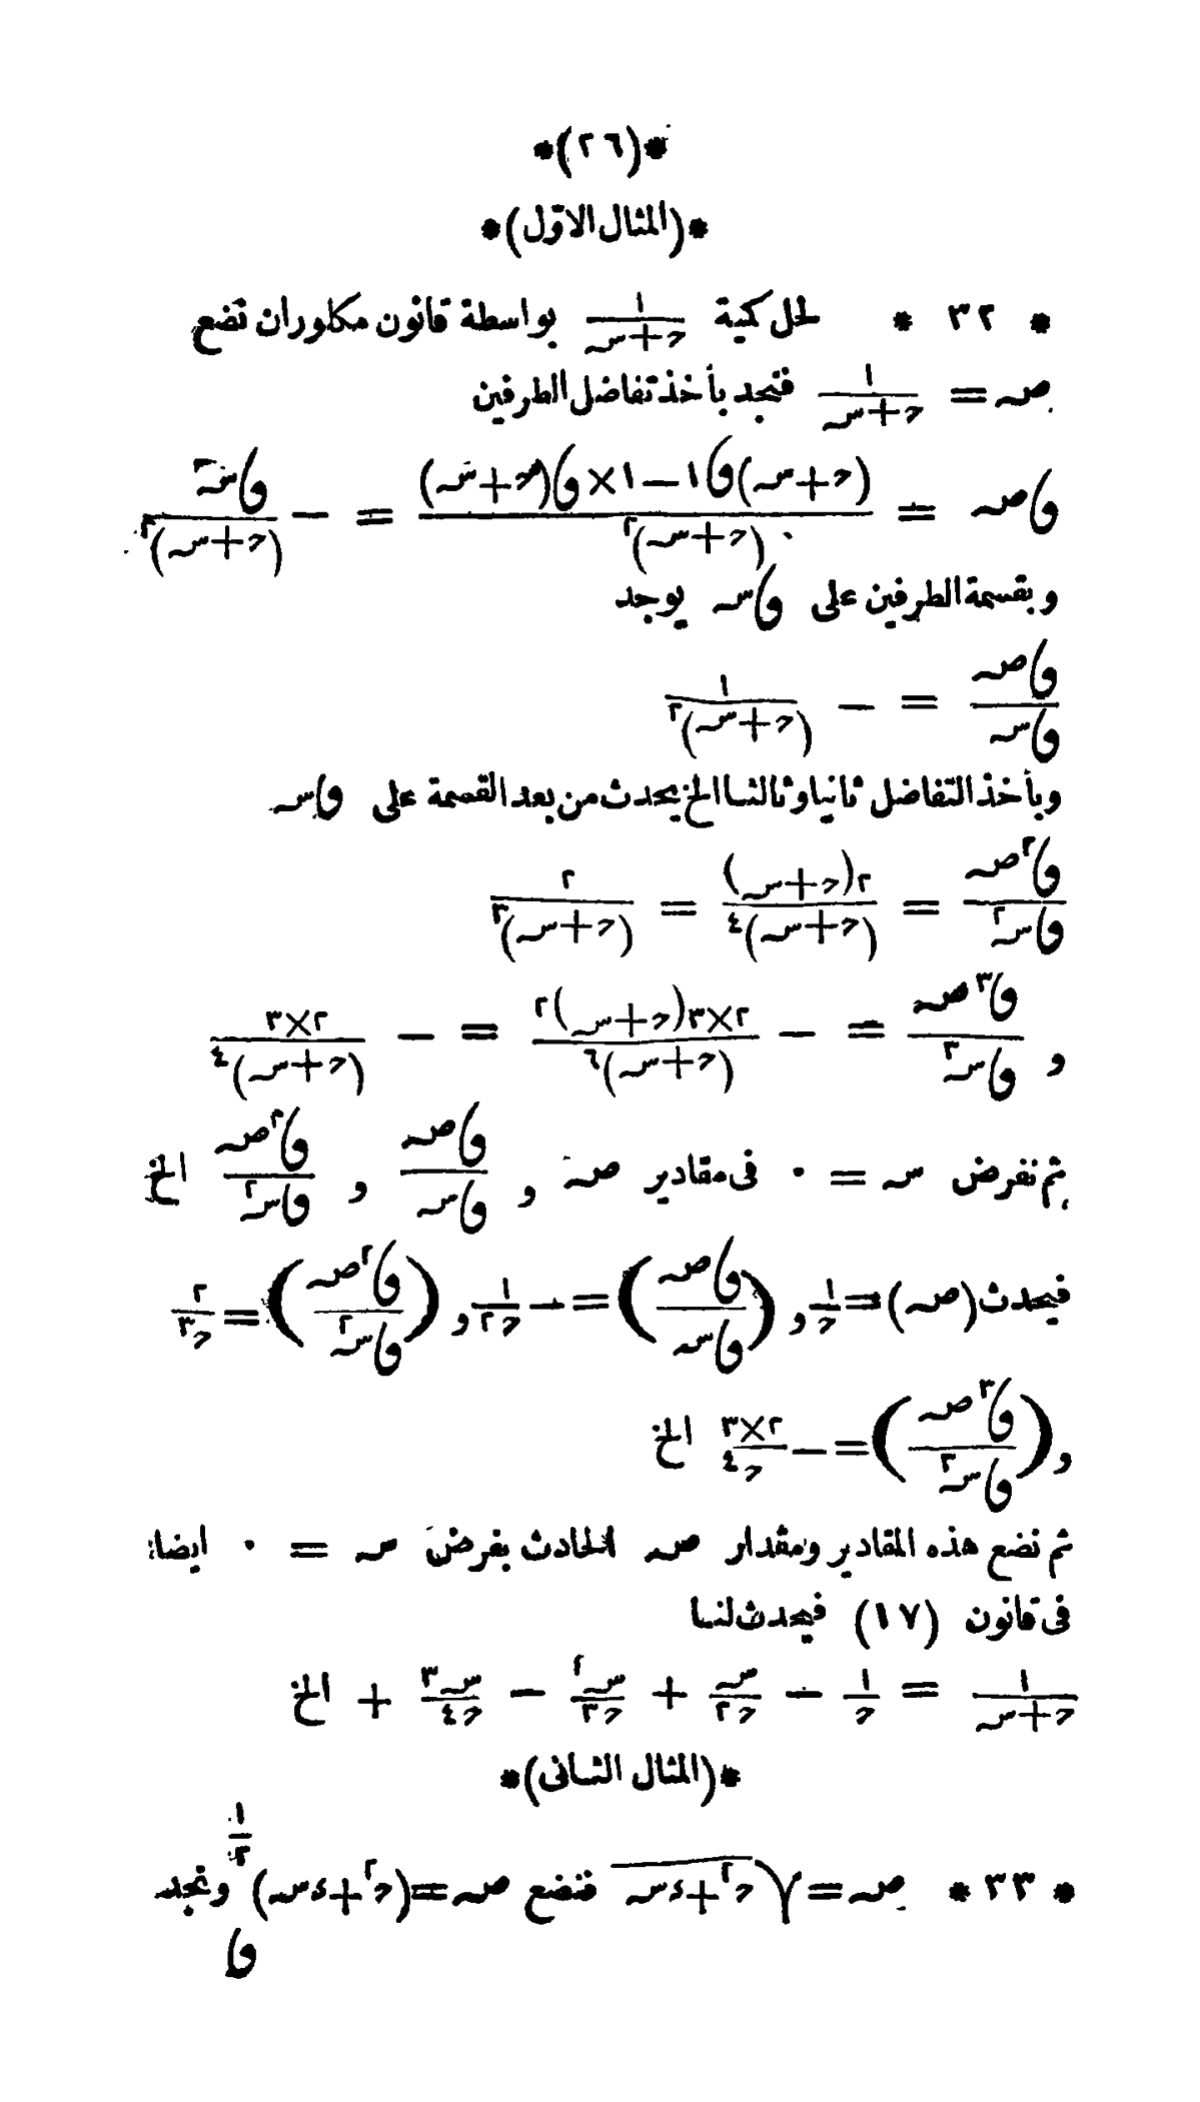 *(٢٦)*
*(المثال الاوّل)*
* ٣٢ * لحل كمية ١/(ح+س) بواسطة قانون مكلوران نضع
ص = ١/(ح+س) فنجد بأخذ تفاضل الطرفين
وص = ((ح+س)و١−١×و(ح+س))/(ح+س)^٢ = − وس/(ح+س)^٢
وبقسمة الطرفين على وس يوجد
وص/وس = − ١/(ح+س)^٢
وبأخذ التفاضل ثانيا وثالثا الخ يحدث من بعد القسمة على وس
و^٢ص/وس^٢ = ٢(ح+س)/(ح+س)^٤ = ٢/(ح+س)^٣
و و^٣ص/وس^٣ = − ٢×٣(ح+س)^٢/(ح+س)^٦ = − ٢×٣/(ح+س)^٤
ثم نفرض س = ٠ فى مقادير ص و وص/وس و و^٢ص/وس^٢ الخ
فيحدث (ص)=١/ح و (وص/وس)=−١/ح^٢ و (و^٢ص/وس^٢)=٢/ح^٣
و (و^٣ص/وس^٣)=−٢×٣/ح^٤ الخ
ثم نضع هذه المقادير ومقدار ص الحادث بفرض س = ٠ ايضا
فى قانون (١٧) فيحدث لنا
١/(ح+س) = ١/ح − س/ح^٢ + س^٢/ح^٣ − س^٣/ح^٤ + الخ
*(المثال الثانى)*
* ٣٣ * ص=√(ح^٢+ءس) فنضع ص=(ح^٢+ءس)^(١/٢) ونجد
و